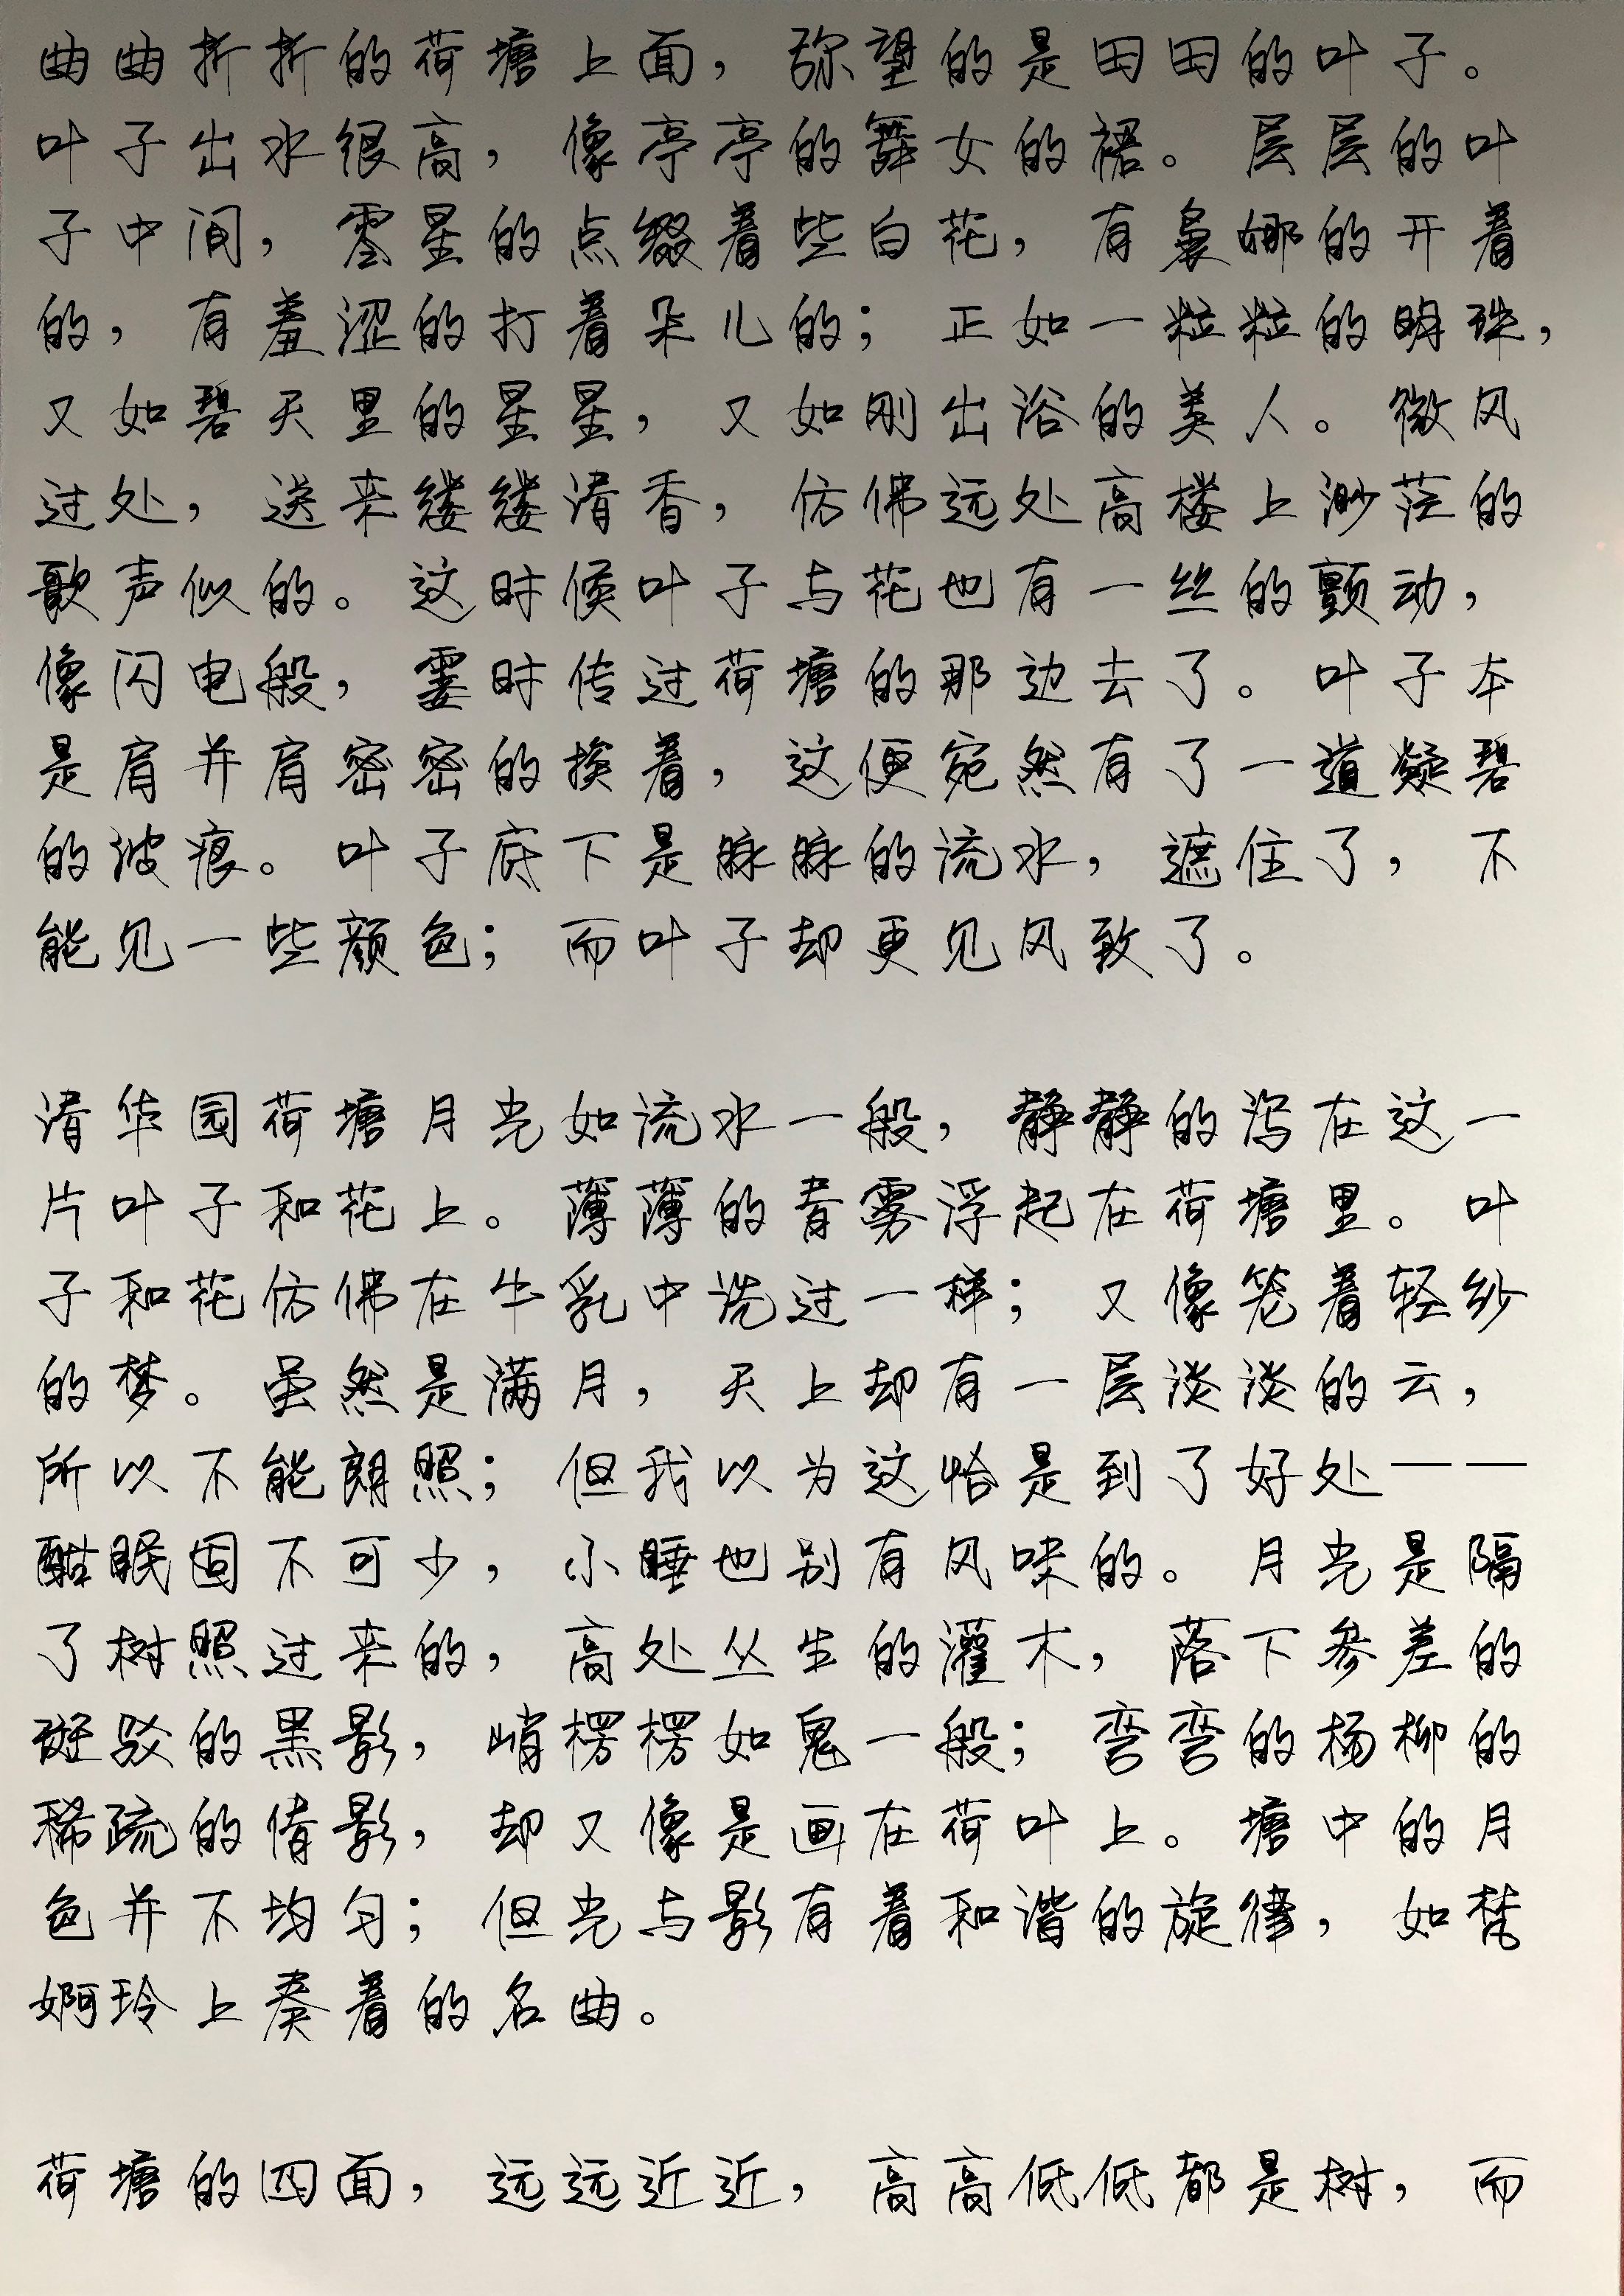 曲曲折折的荷塘上面，弥望的是田田的叶子。
叶子出水很高，像亭亭的舞女的裙。层层的叶
子中间，零星的点缀着些白花，有袅娜的开着
的，有羞涩的打着朵儿的；正如一粒粒的明珠，
又如碧天里的星星，又如刚出浴的美人。微风
过处，送来缕缕清香，仿佛远处高楼上渺茫的
歌声似的。这时候叶子与花也有一丝的颤动，
像闪电般，霎时传过荷塘的那边去了。叶子本
是肩并肩密密的挨着，这便宛然有了一道凝碧
的波痕。叶子底下是脉脉的流水，遮住了，不
能见一些颜色；而叶子却更见风致了。
清华园荷塘月光如流水一般，静静的泻在这一
片叶子和花上。薄薄的青雾浮起在荷塘里。叶
子和花仿佛在牛乳中洗过一样；又像笼着轻纱
的梦。虽然是满月，天上却有一层淡淡的云，
所以不能朗照；但我以为这恰是到了好处——
酣眠固不可少，小睡也别有风味的。月光是隔
了树照过来的，高处丛生的灌木，落下参差的
斑驳的黑影，峭楞楞如鬼一般；弯弯的杨柳的
稀疏的倩影，却又像是画在荷叶上。塘中的月
色并不均匀；但光与影有着和谐的旋律，如梵
婀玲上奏着的名曲。
荷塘的四面，远远近近，高高低低都是树，而